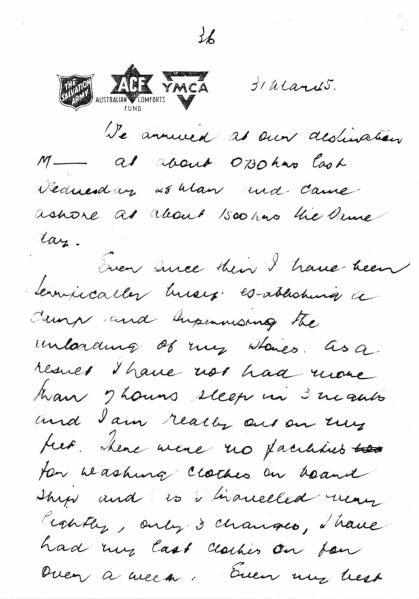 36
THE SALVATION ARMY
ACF
AUSTRALIAN COMFORTS FUND
YMCA
31 Mar 45.
We arrived at our destination
M— at about 0730 hrs last
Wednesday 28 Mar and came
ashore at about 1500 hrs the same
day.
Ever since then I have been
terrifically busy establishing a
dump and supervising the
unloading of my stores. As a
result I have not had more
than 7 hours sleep in 3 nights
and I am really out on my
feet. There were no facilities
for washing clothes on board
ship and as I travelled very
lightly, only 3 changes, I have
had my last clothes on for
over a week. Even my best